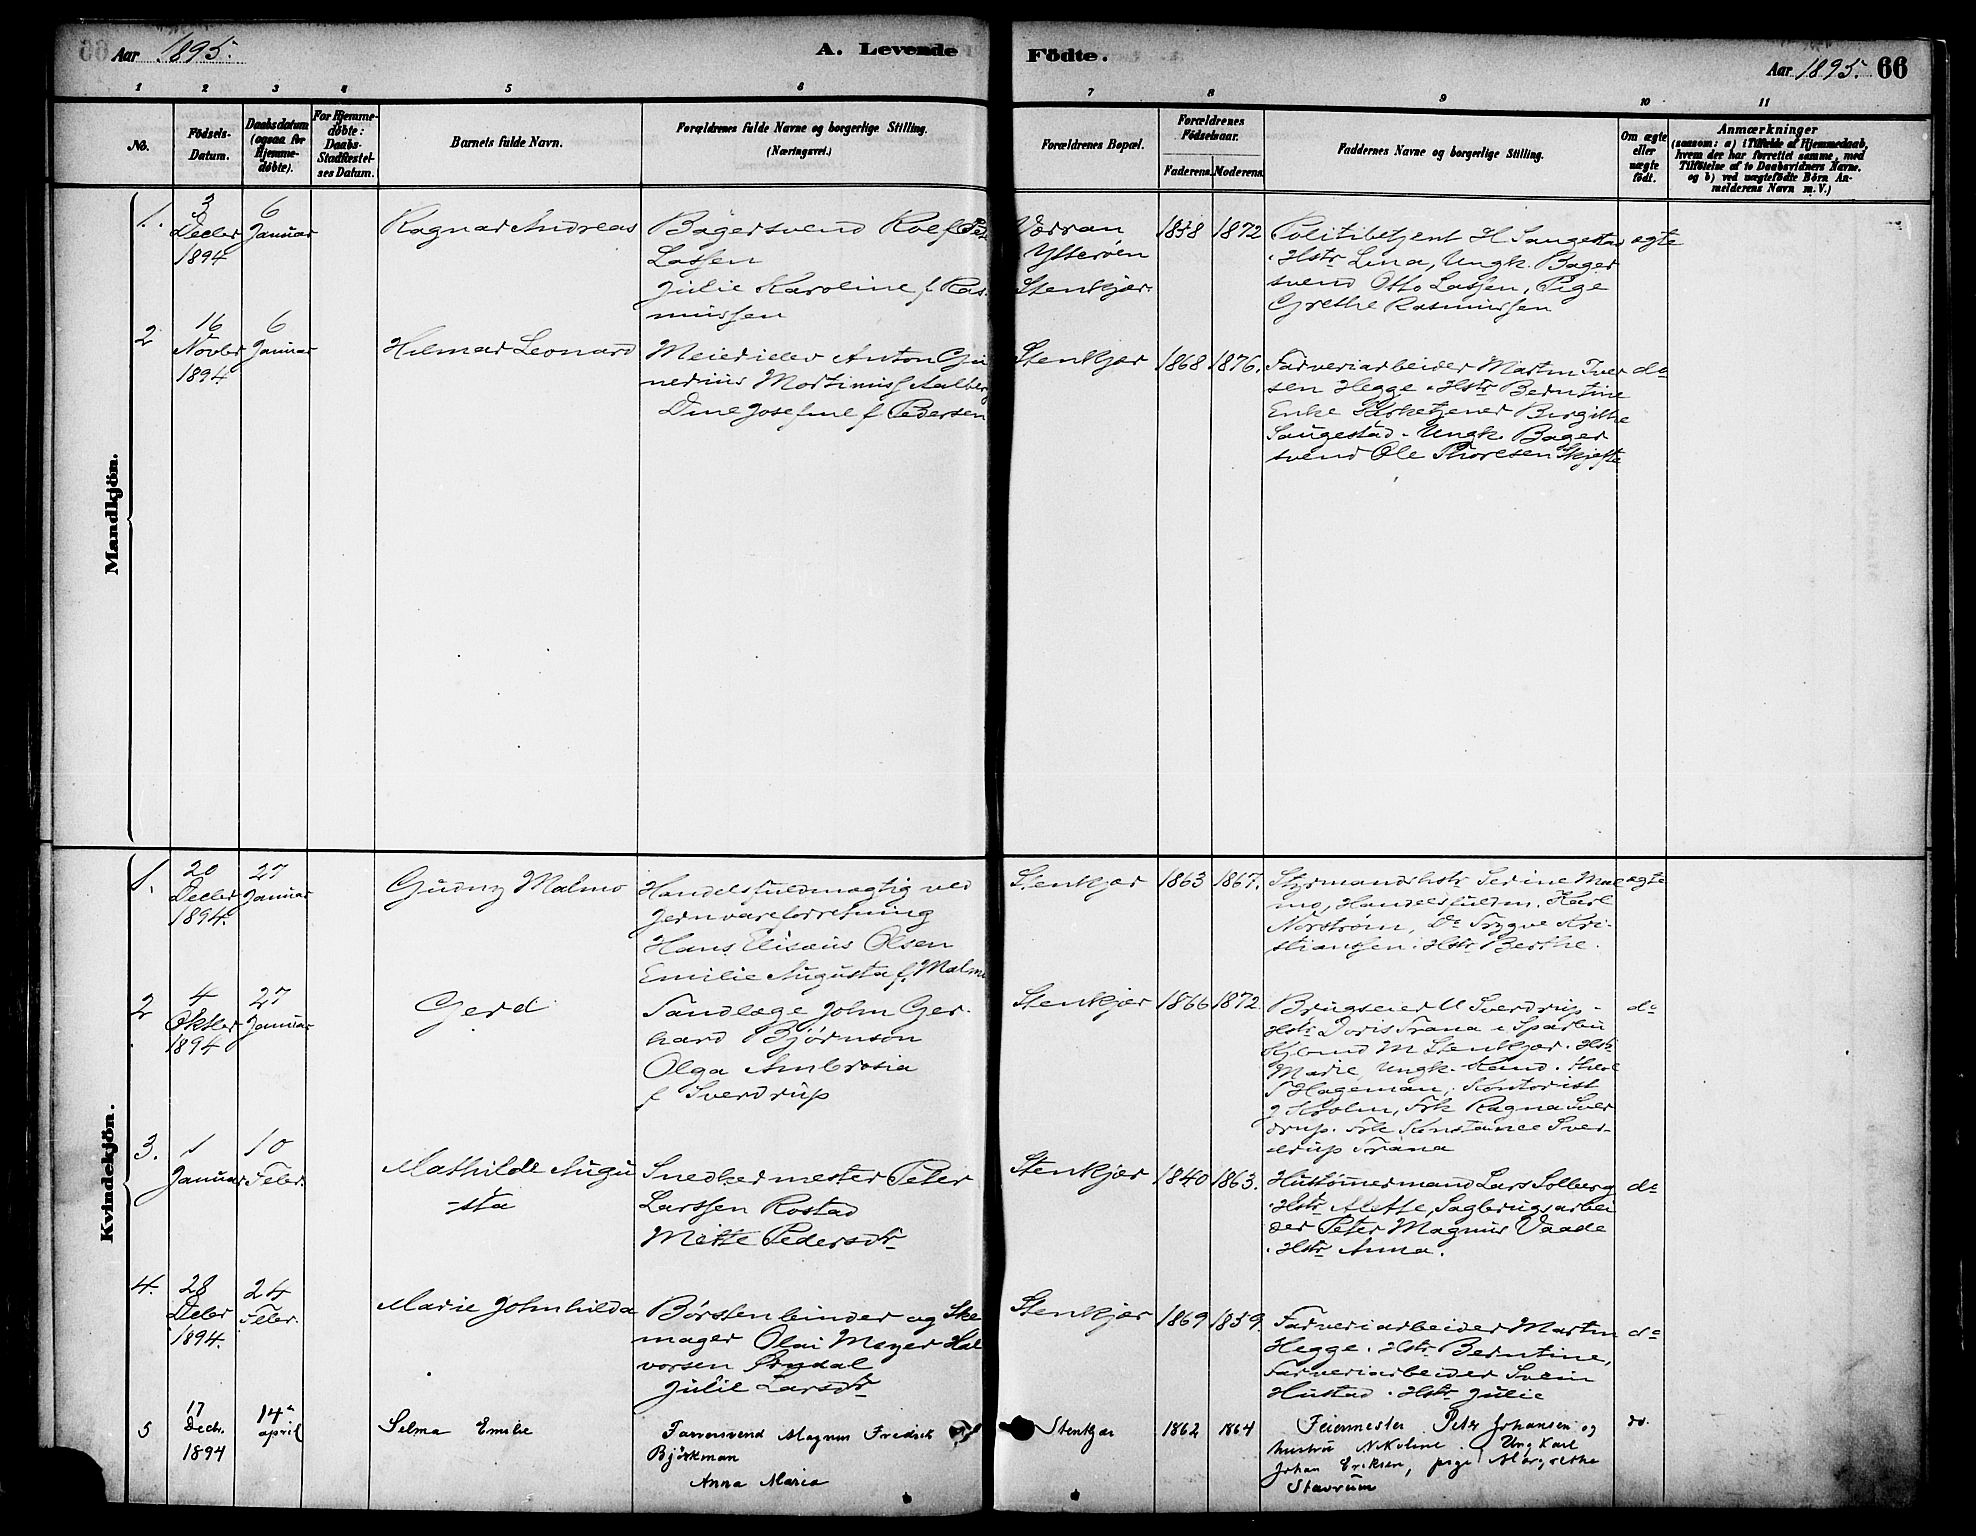 Aar 1895.
A. Levende
Födte.
Aar 1895. 66
1 2 3 4 5 6 7 8 9 10 11
No.
Födsels-
Datum.
Daabsdatum
(ogsaa for
Hjemme-
døbte).
For Hjemme-
døbte:
Daabs-
Stadfæstel-
ses Datum.
Barnets fulde Navn.
Forældrenes fulde Navne og borgerlige Stilling.
(Næringsvei.)
Forældrenes Bopæl.
Forældrenes
Födselsaar.
Faderens. Moderens.
Faddernes Navne og borgerlige Stilling.
Om ægte
eller
uægte
födt.
Anmærkninger
(saasom: a) i Tilfælde af Hjemmedaab,
hvem der har forrettet samme, med
Tilföielse af to Daabsvidners Navne.
og b) ved uægtefödte Börn An-
melderens Navn m. V.)
Mandkjön.
1.
3
Decbr
1894
6
Januar
Ragnar Andreas
Bagersvend Rolf
Lassen
Julie Karoline f. Ras-
mussen
Værran
Ytterøen
Stenkjær
1858 1872
Politibetjent H Saugestad
Hstr Lina, Ungk. Bager
svend Otto Lassen, Pige
Grethe Rasmussen
ægte
2
16
Novbr
1894
6
Januar
Hilmar Leonard
Meierielev Anton Gu
nerius Mortinus Aalberg
Dine Josefine f Pedersen
Stenkjær
1868 1876.
Farveriarbeider Martin Iver
sen Hegge. Hstr Berntine
Enke Birgitte
Saugestad. Ungk. Bager
svend Ole Thoresen Skjefte
do
Kvindekjön.
1.
20
Decbr
1894.
27
Januar
Gudny Malmo
Handelsfuldmægtig ved
Jernvareforretning
Hans Elisæus Olsen
Emilie Augusta f. Malmo
Stenkjær
1863 1867.
Styrmandshstr Serine Mal
mo, Handelsfuldm. Karl
Norstrøm, Do Trygve Kri-
stianssen. Hstr Berthe.
ægte
2
4
Oktbr
1894
27
Januar
Gerd
Tandlæge John Ger-
hard Bjørnson
Olga Ambrosia
f Sverdrup
Stenkjær
1866 1872
Brugseier U Sverdrup-
Hstr Doris Trana i Sparbu
Kjbmd M Stenkjær. Hstr
Marie, Ungk. Kand. theol
Hageman, Kontorist
Holm, Frk Ragna Sver
drup. Frk Konstance Sver-
drup Trana
do
3.
1
Januar
10
Febr.
Mathilde Augu
-sta
Snedkermester Peter
Larssen Rostad
Mette Pedersdtr
Stenkjær
1840 1863.
Hustømmermand Lars Solberg
Hstr Alette, Sagbrugsarbei
der Peter Magnus Vaade
. Hstr Anna.
do
4.
28
Debr
1894.
24
Febr.
Marie Johnhilda
Børstenbinder og Sko
mager Olai Meyer Hal
vorsen Ørndal
Julie Larsdtr
Stenkjær
1869 1859.
Farveriarbeider Martin
Hegge. Hstr Berntine,
Farveriarbeider Svein
Hustad. Hstr Julie
do
5
17
Decbr.
1894
14de
april
Selma Emilie
Farversvend Magnus Fredrik
Björkman
Anna Maria
Stenkjær
1862 1864
Feiermester Peter Johansen og
hustru Nikoline. Ungkarl
Johan Eriksen, pige Margrethe
Stavrum
do.